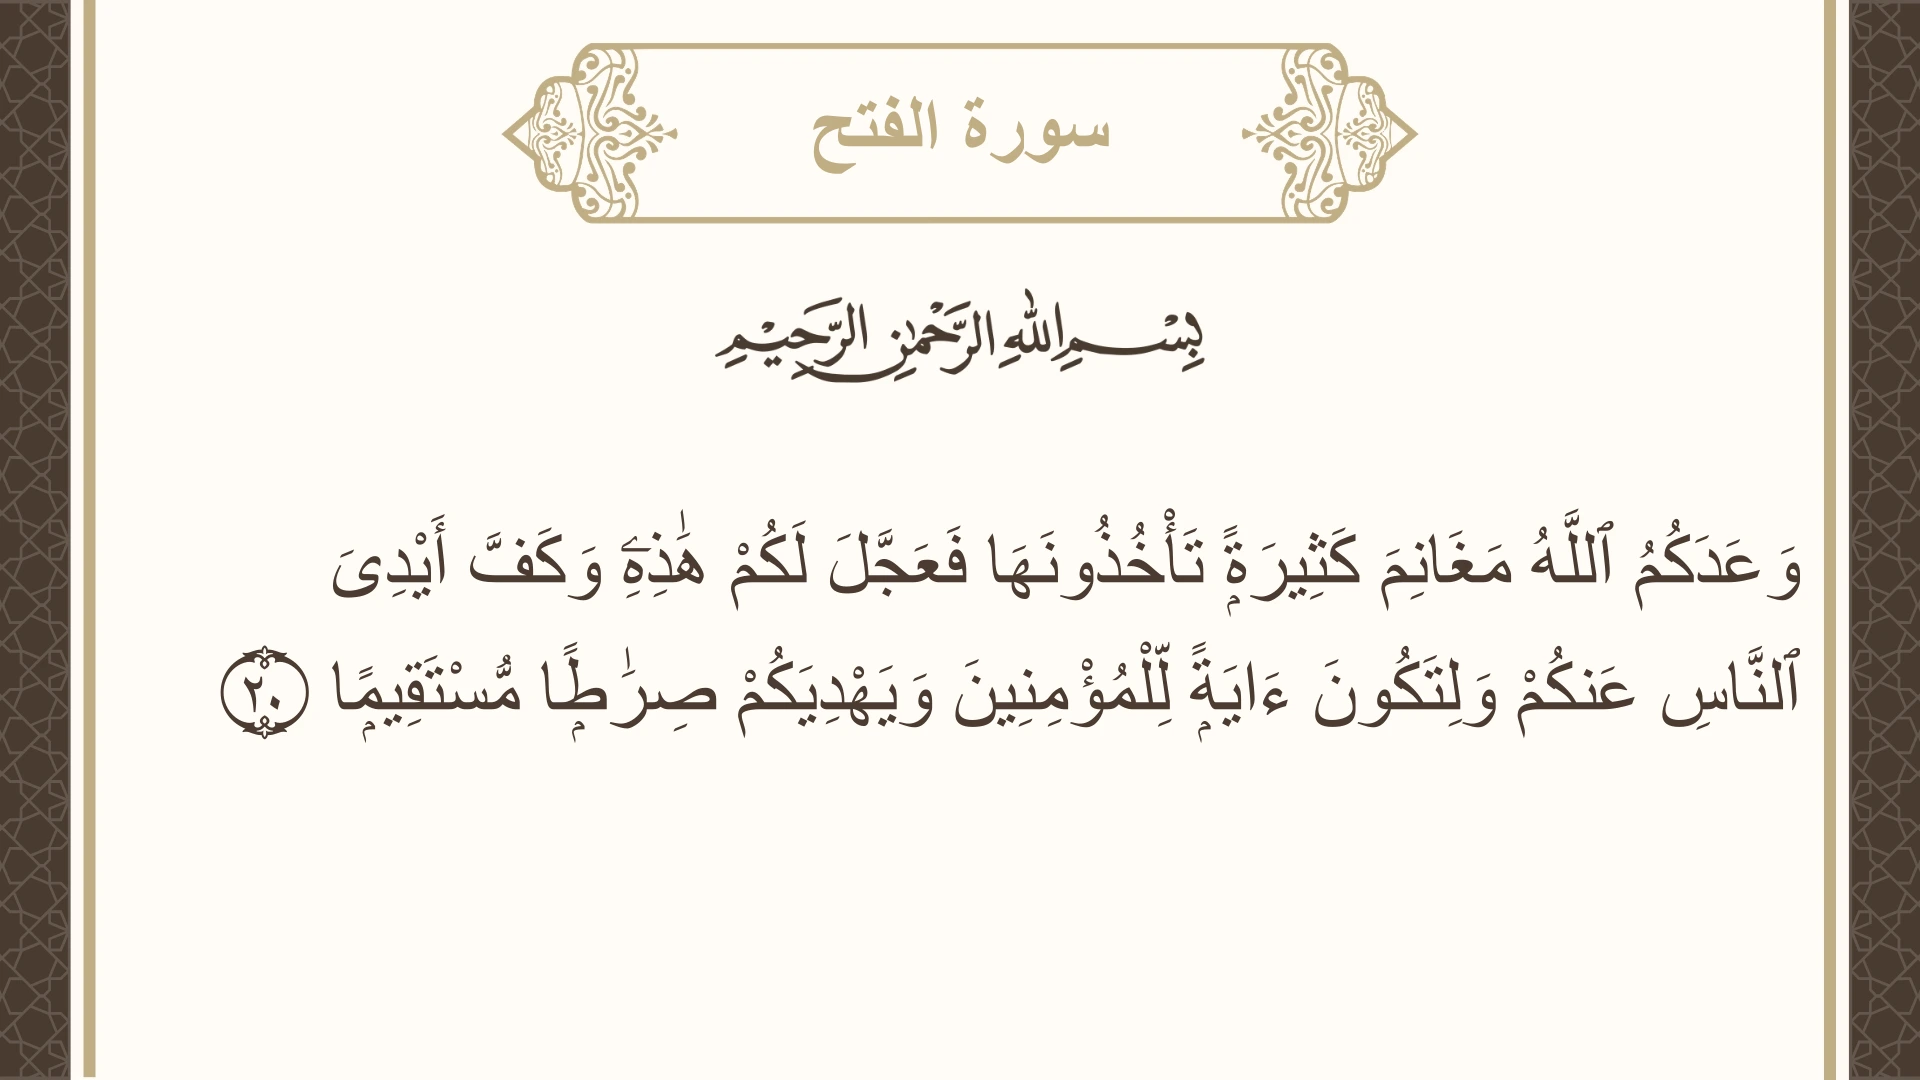 سورة الفتح
بِسْمِ اللهِ الرَّحْمٰنِ الرَّحِيْمِ
وَعَدَكُمُ ٱللَّهُ مَغَانِمَ كَثِيرَةًۭ تَأْخُذُونَهَا فَعَجَّلَ لَكُمْ هَـٰذِهِۦ وَكَفَّ أَيْدِىَ
ٱلنَّاسِ عَنكُمْ وَلِتَكُونَ ءَايَةًۭ لِّلْمُؤْمِنِينَ وَيَهْدِيَكُمْ صِرَٰطًۭا مُّسْتَقِيمًۭا ٢٠